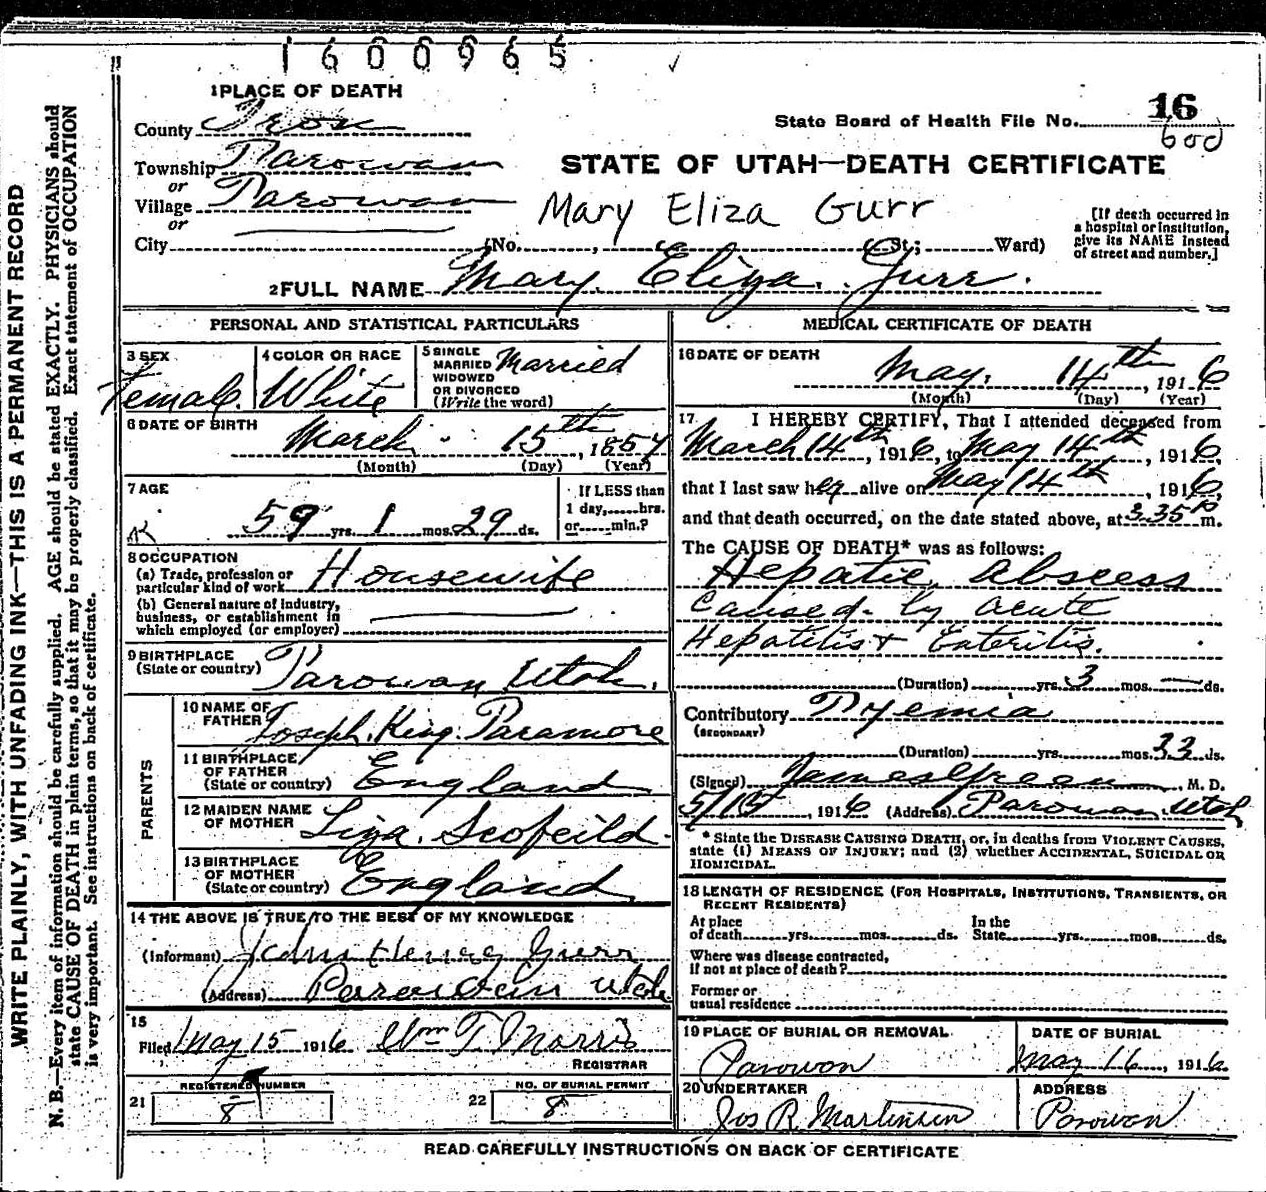 1600965
1 PLACE OF DEATH
County Iron
State Board of Health File No. 16
600
Township Parowan
or
Village Parowan
or
STATE OF UTAH—DEATH CERTIFICATE
Mary Eliza Gurr
[If death occurred in
a hospital or institution,
give its NAME instead
of street and number.]
City (No. , St.; Ward)
2 FULL NAME Mary Eliza Gurr.
PERSONAL AND STATISTICAL PARTICULARS
3 SEX
Female.
4 COLOR OR RACE
White
5 SINGLE
MARRIED
WIDOWED
OR DIVORCED
(Write the word)
Married
6 DATE OF BIRTH
March 15th, 1857
(Month) (Day) (Year)
7 AGE
59 yrs. 1 mos. 29 ds.
If LESS than
1 day, hrs.
or min.?
8 OCCUPATION
(a) Trade, profession or
particular kind of work Housewife
(b) General nature of industry,
business, or establishment in
which employed (or employer)
9 BIRTHPLACE
(State or country) Parowan Utah.
PARENTS
10 NAME OF
FATHER Joseph King Paramore
11 BIRTHPLACE
OF FATHER
(State or country) England
12 MAIDEN NAME
OF MOTHER Liza Scofeild
13 BIRTHPLACE
OF MOTHER
(State or country) England
14 THE ABOVE IS TRUE TO THE BEST OF MY KNOWLEDGE
(Informant) John Henry Gurr
(Address) Parowan Utah
15
Filed May 15 1916 Wm T. Morris
REGISTRAR
REGISTERED NUMBER
21 8
NO. OF BURIAL PERMIT
22 8
MEDICAL CERTIFICATE OF DEATH
16 DATE OF DEATH
May. 14th, 1916
(Month) (Day) (Year)
17 I HEREBY CERTIFY, That I attended deceased from
March 14th, 1916, to May 14th, 1916,
that I last saw her alive on May 14th, 1916,
and that death occurred, on the date stated above, at 3.35 P m.
The CAUSE OF DEATH* was as follows:
Hepatic Abscess
Caused by Acute
Hepatitis & Enteritis.
(Duration) yrs. 3 mos. — ds.
Contributory Pyemia
(SECONDARY)
(Duration) yrs. mos. 33 ds.
(Signed) James Green, M. D.
5/15, 1916 (Address) Parowan Utah
* State the DISEASE CAUSING DEATH, or, in deaths from VIOLENT CAUSES,
state (1) MEANS OF INJURY; and (2) whether ACCIDENTAL, SUICIDAL OR
HOMICIDAL.
18 LENGTH OF RESIDENCE (FOR HOSPITALS, INSTITUTIONS, TRANSIENTS, OR
RECENT RESIDENTS)
At place
of death yrs. mos. ds.
In the
State yrs. mos. ds.
Where was disease contracted,
if not at place of death?
Former or
usual residence
19 PLACE OF BURIAL OR REMOVAL
Parowan
DATE OF BURIAL
May 16, 1916
20 UNDERTAKER
Jos R. Martinsen
ADDRESS
Parowan
READ CAREFULLY INSTRUCTIONS ON BACK OF CERTIFICATE
WRITE PLAINLY, WITH UNFADING INK—THIS IS A PERMANENT RECORD
N. B.—Every item of information should be carefully supplied. AGE should be stated EXACTLY. PHYSICIANS should
state CAUSE OF DEATH in plain terms, so that it may be properly classified. Exact statement of OCCUPATION
is very important. See instructions on back of certificate.